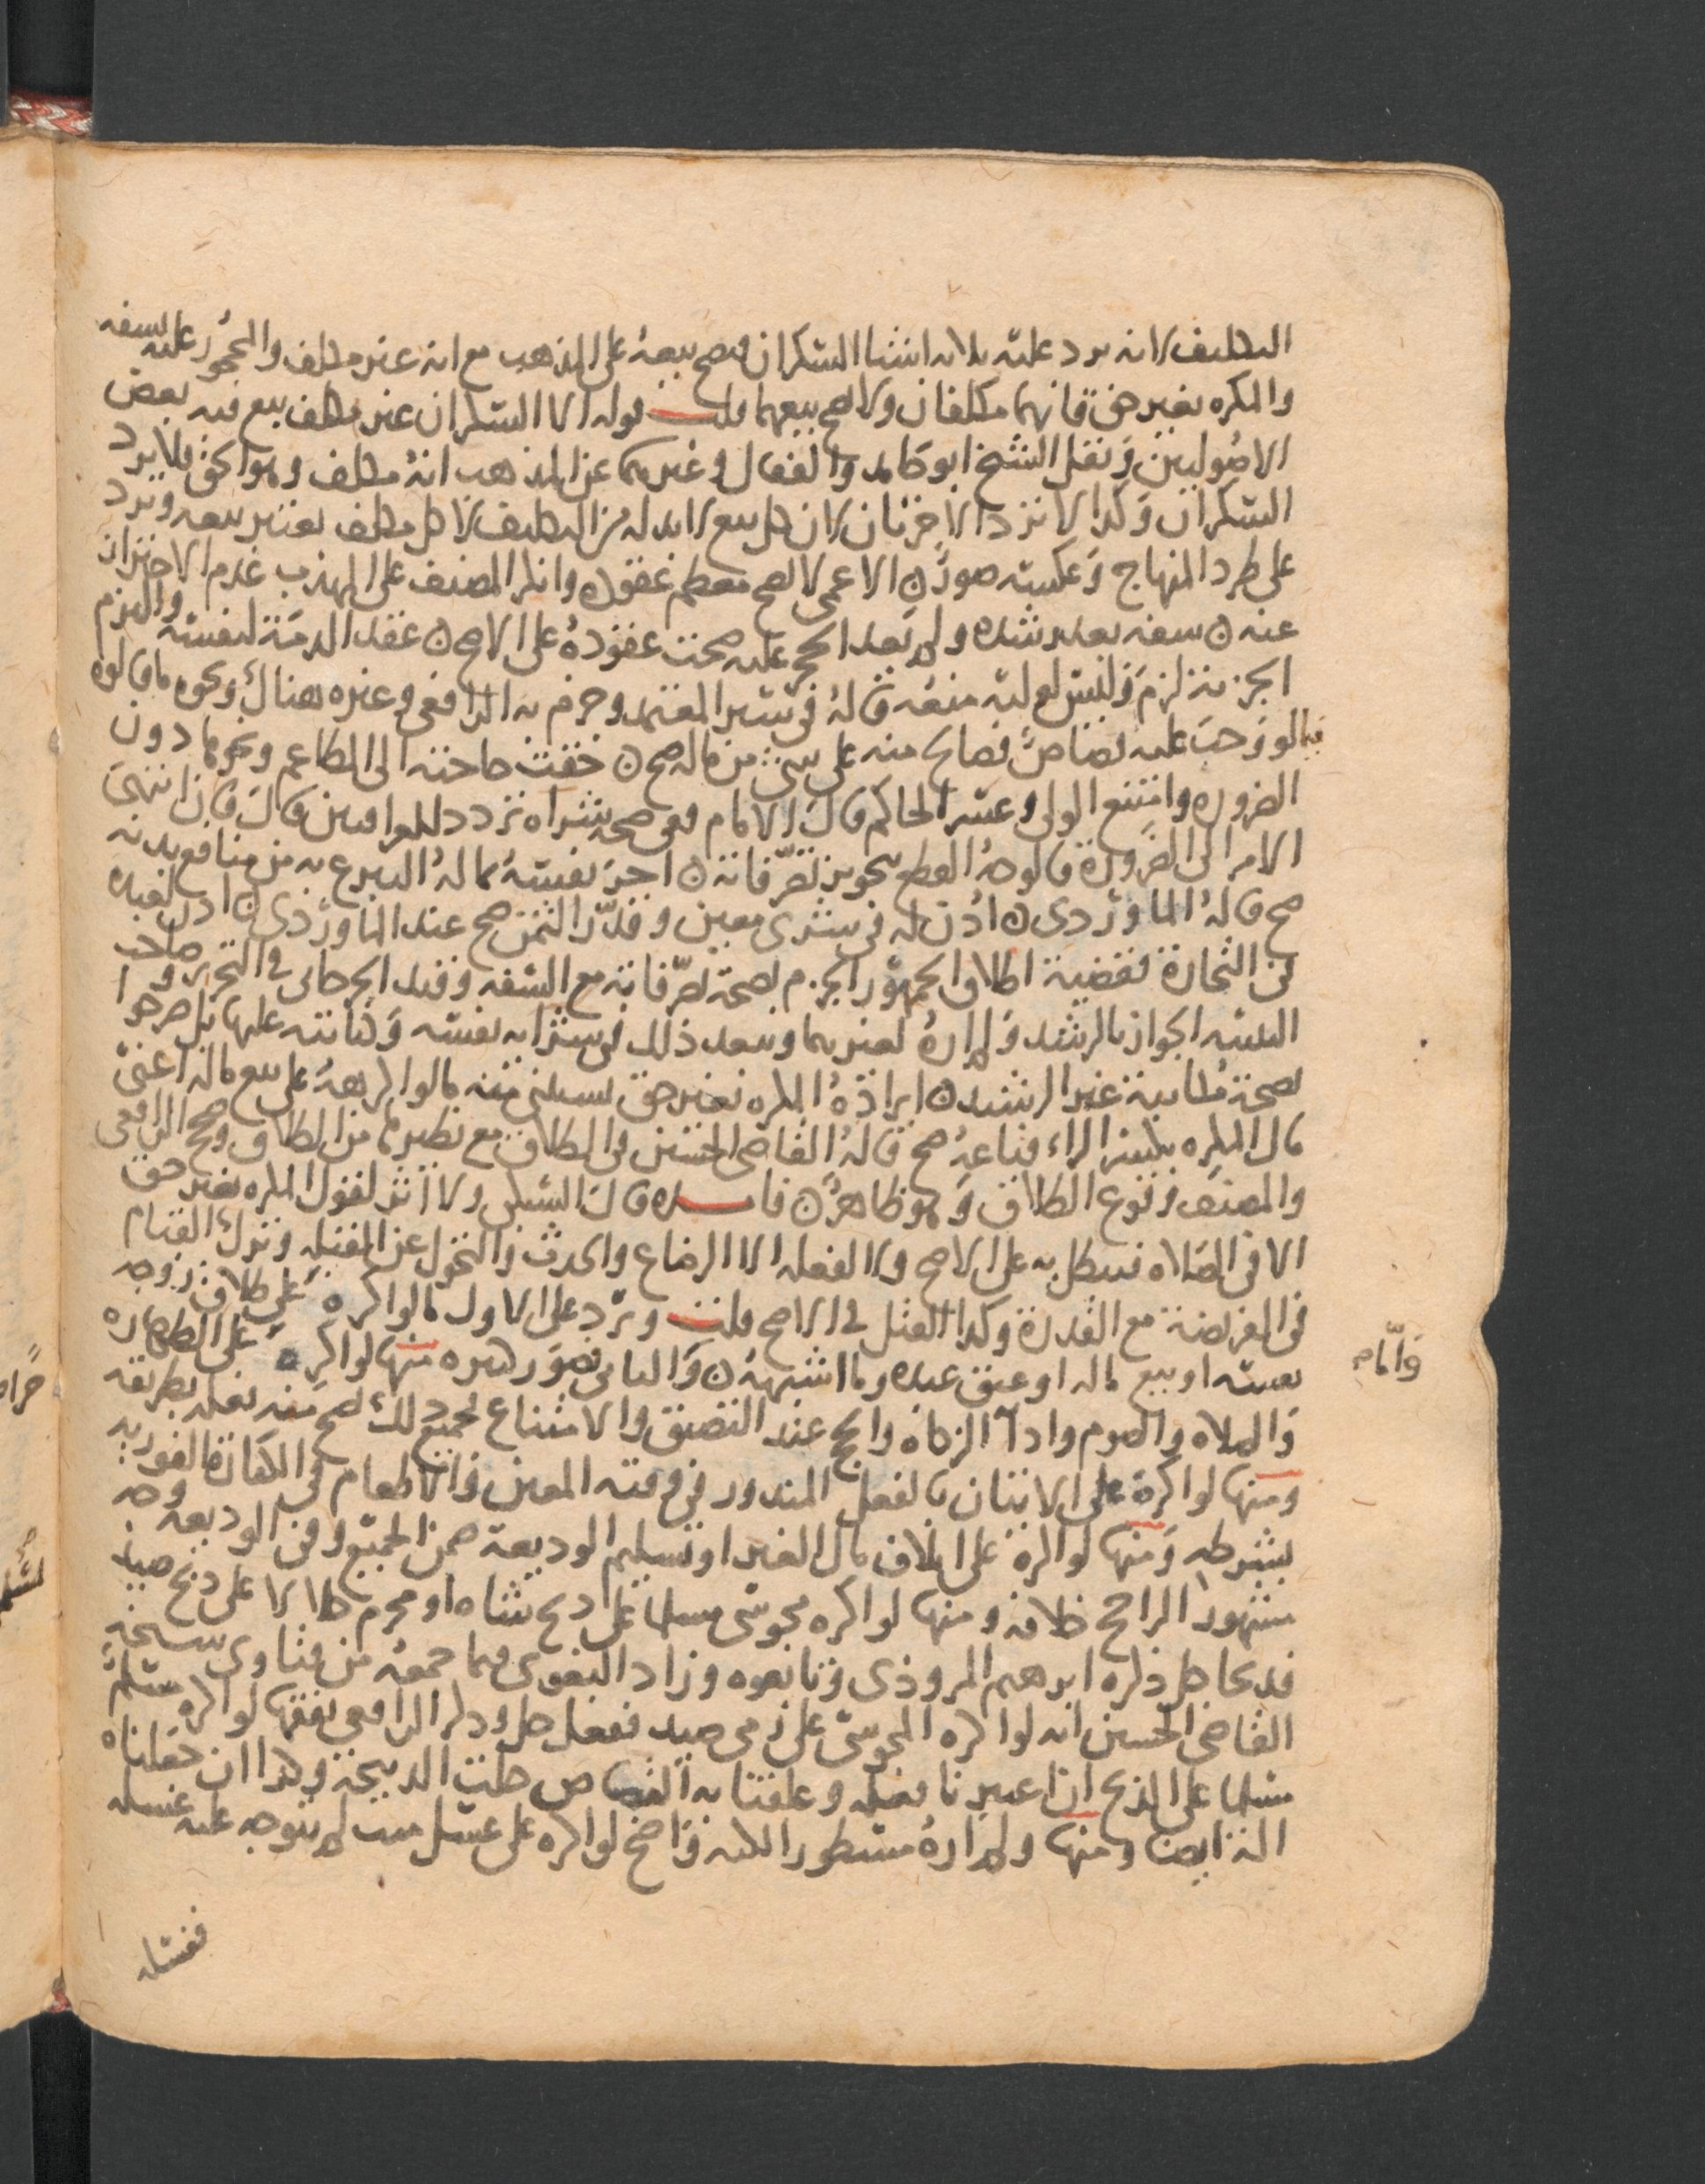 التكليف لانه يرد عليه ثلاثه اشيا السكران يصح بيعه على المذهب مع انه غير مكلف والمحجور عليه بسفه
والمكره بغير حق فانهما مكلفان ولا يصح بيعهما قلت قوله الا السكران غير مكلف تبع فيه بعض
الاصوليين ونقل الشيخ ابو حامد والقفال وغيرهما عن المذهب انه مكلف وهو الحق فلا يرد
السكران وكذا لا يرد الاخرتان لان كل بيع لا بد له من التكليف لا كل مكلف يعتبر بيعه ويرد
على طرد المنهاج وعكسه صور ن الاعمى لا يصح معظم عقوده وانكر المصنف على المهذب عدم الاحتراز
عنه ن سفه بعد رشده ولم يعد الحجر عليه صحت عقوده على الاصح ن عقد الذمة لنفسه والتزم
الجزية لزم وليس لوليه منعه قاله في سير المعتمد وجزم به الرافعي وغيره هناك ونحوه ما قالوه
فيما لو وجب عليه قصاص فصالح منه على شيء من ماله صح ن خفت حاجته الى المطاعم ونحوها دون
الضروره وامتنع الولي وعسر الحاكم قال الامام ففي صحة شراه تردد للعراقيين قال فان انتهى
الامر الى الضرورة فالوجه القطع بتجويز تصرفاته ن اجر نفسه بما له التبرع به من منافع بدنه
صح قاله الماوردي ن اذن له في شرى معين وقدر الثمن صح عند الماوردي ن اذن لعبده
في التجارة فقضية اطلاق الجمهور الجزم بصحة تصرفاته مع السفه وقيد الجرجاني في التحرير وصاحب
التنبيه الجواز بالرشد ولم اره لغيرهما ويبعد ذلك في شرايه نفسه وكتابته عليها بل صرحوا
بصحة مكاتبة غير الرشيد ن ايراده المكره بغير حق يستثنى منه ما لو اكرهه على بيع ماله اعني
مال المكره بكسر الراء فباعه صح قاله القاضي الحسين في الطلاق مع نظيرها من الطلاق وصحح الرافعي
والمصنف وقوع الطلاق وهو ظاهر ن فايده قال السبكي ولا اثر لقول المكره بغير حق
الا في الصلاه فتبطل به على الاصح ولا لفعله الا الرضاع والحدث والتحول عن القبله وترك القيام
في الفريضة مع القدرة وكذا القتل في الاصح قلت ويرد على الاول ما لو اكره على طلاق زوجه
نفسه او بيع ماله او عتق عبده وما اشبهه ن والثاني صور كثيره منها لو اكره على الطهاره
والصلاه والصوم وادا الزكاه والحج عند التضيق والامتناع فجميع ذلك يصح منه بفعله بطريقه
ومنها لو اكره على الاتيان بالفعل المنذور في وقته المعين والاطعام في الكفارة الفوريه
بشرطه ومنها لو اكره على اتلاف مال الغير او تسليم الوديعة ضمن الجميع وفي الوديعه وجه
مشهور الراجح خلافه ومنها لو اكره مجوسي مسلما على ذبح شاه او محرم حلالا على ذبح صيد
فذبحا حل ذكره ابرهيم المروذي وتابعوه وزاد البغوي فيما جمعه من فتاوى شيخه
القاضي الحسين انه لو اكره المجوسي على رمي صيد ففعل حل وذكر الرافعي تفقها لو اكره مسلم
مسلما على الذبح ان اعتبرنا فعله وعلقنا به القصاص حلت الذبيحة وكذا ان جعلناه
الة ايضا ومنها ولم اره مسطورا لكنه واضح لو اكره على غسل ميت لم يتوجه عليه غسله
فغسله
واما م